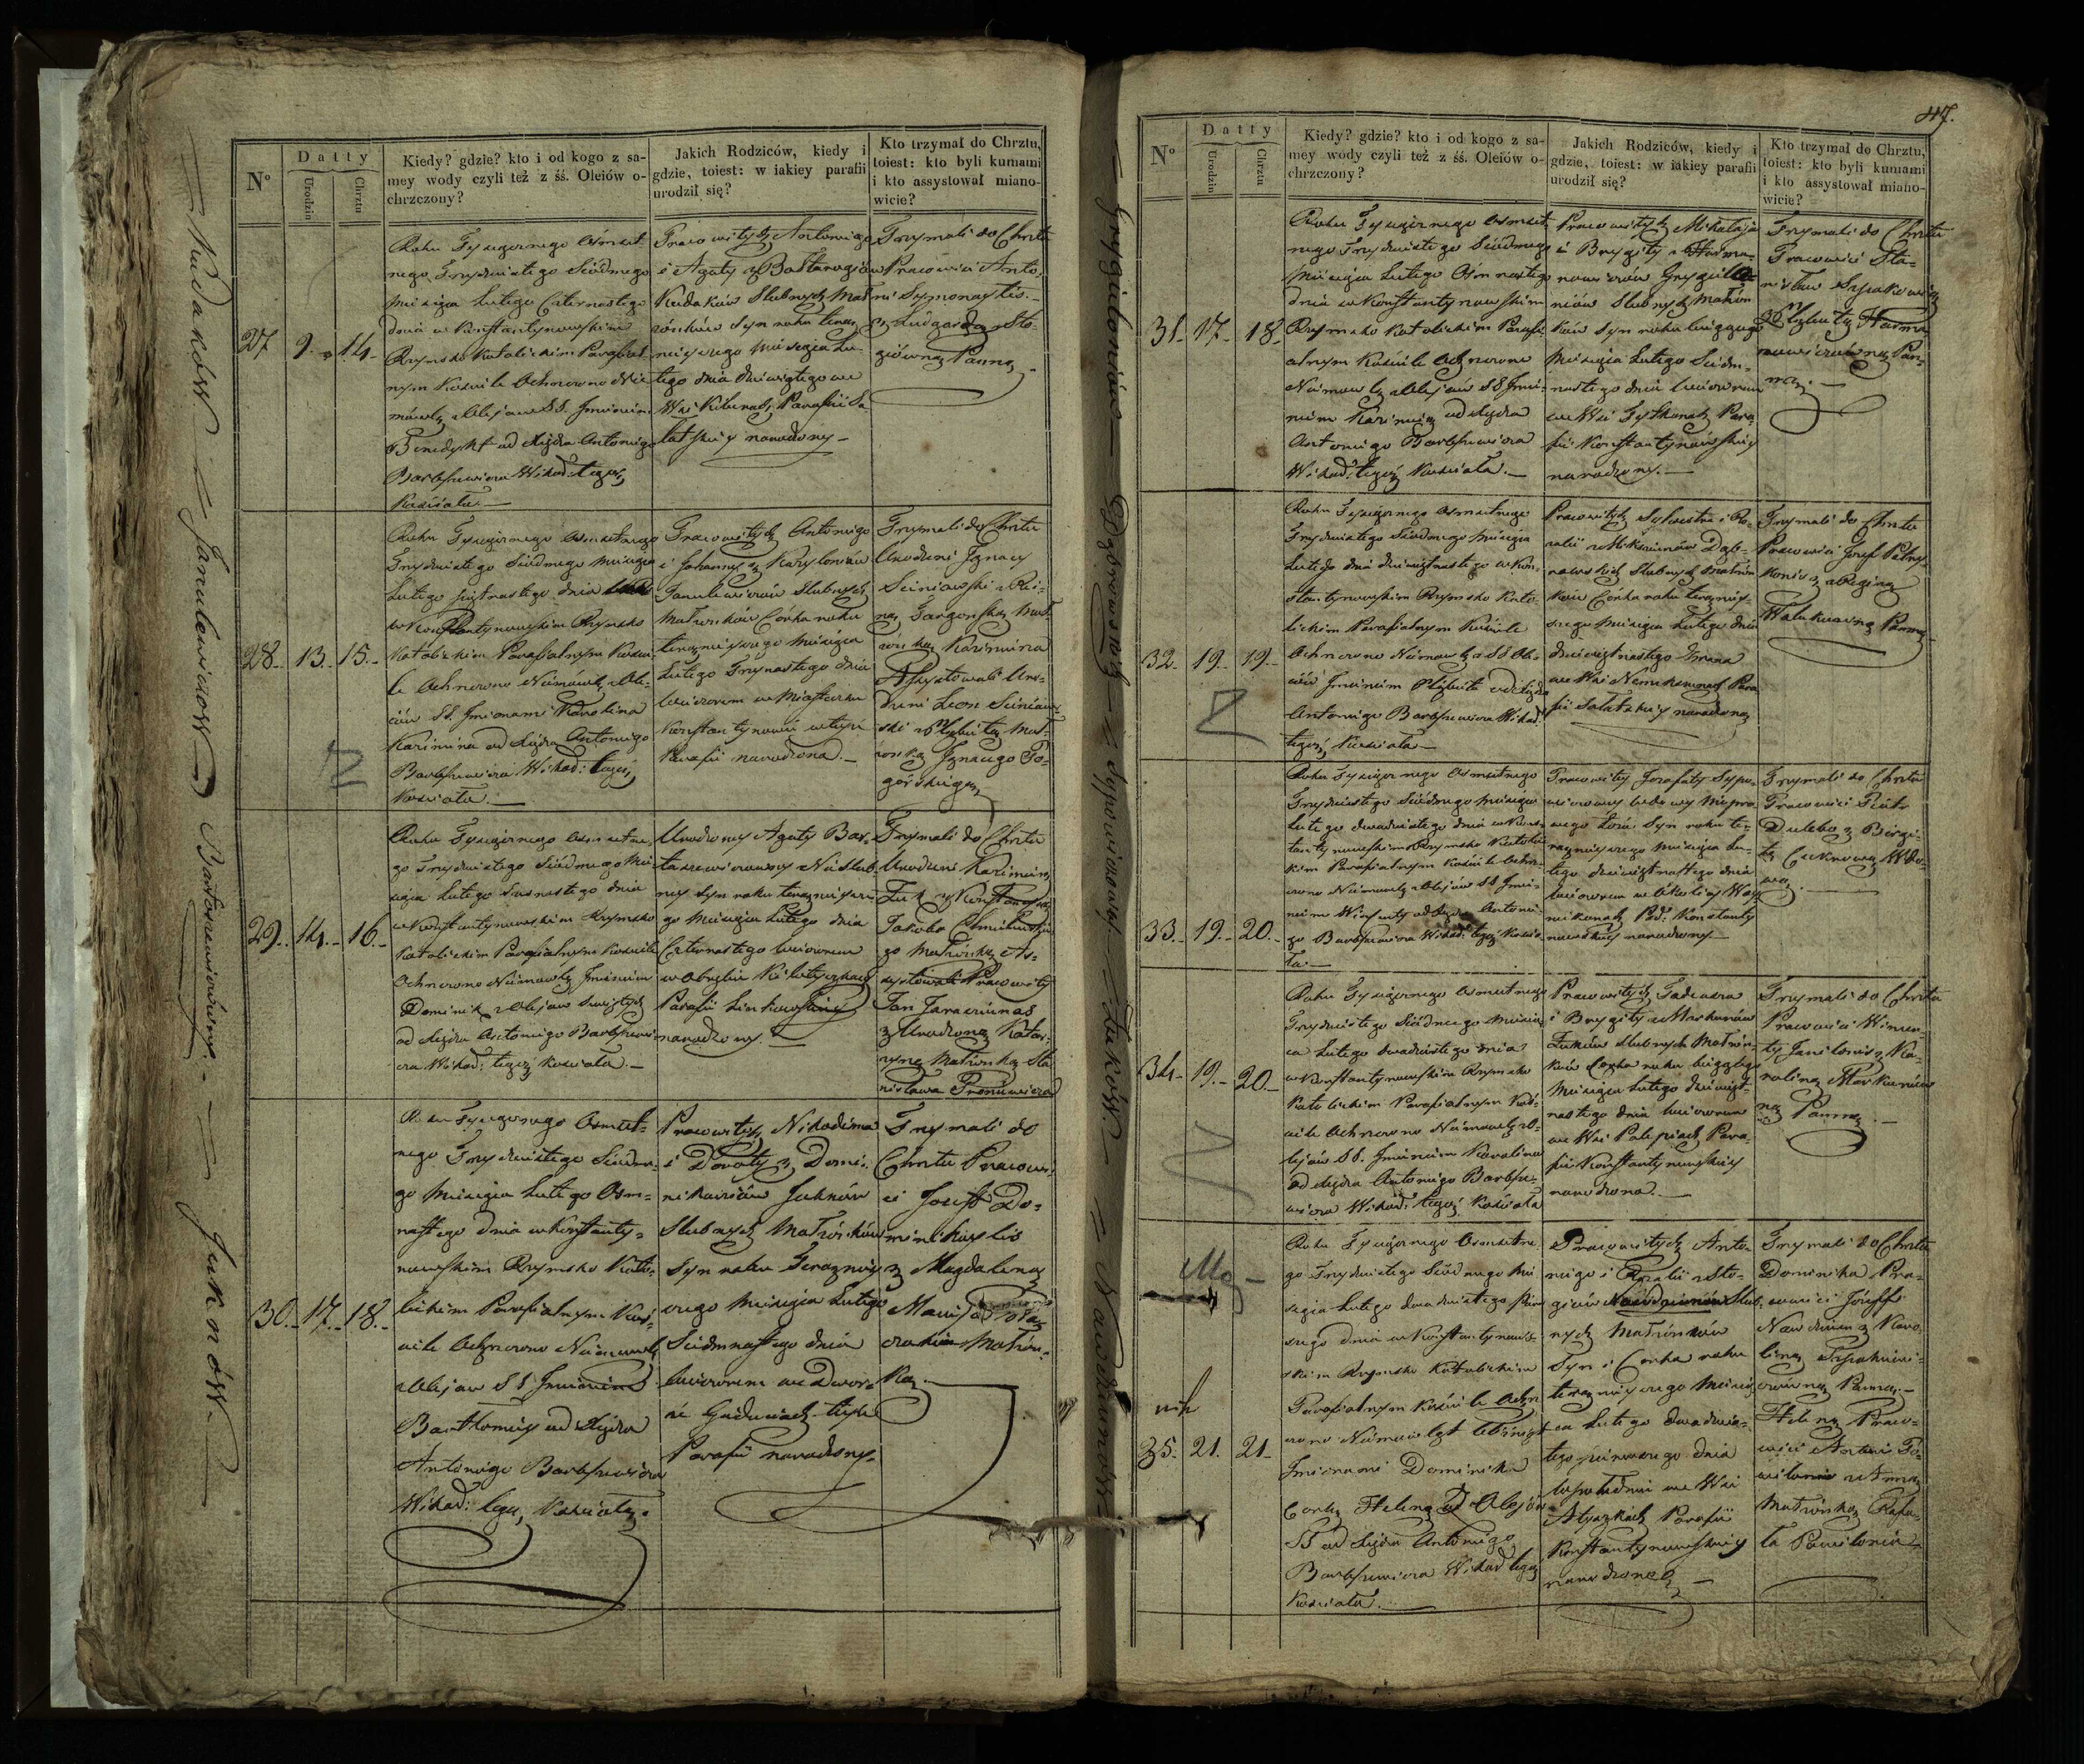 Kudaków – Janulewiczów – Bartaszewiczówny. – Juknów –
Nº
Datty
Urodzin
Chrztu
Kiedy? gdzie? kto i od kogo z sa-
mey wody czyli też z śś. Oleiów o-
chrzczony?
Jakich Rodziców, kiedy i
gdzie, toiest: w iakiey parafii
urodził się?
Kto trzymał do Chrztu,
toiest: kto byli kumami
i kto assystował miano-
wicie?
27
9.
14.
Roku Tysiącznego Ośmset-
nego Trzydziestego Siódmego
Miesiąca Lutego Czternastego
dnia w Konstantynowskim
Rzymsko Katolickim Parafial-
nym Kościele Ochrzczono Nie-
mowlę z Olejow SS. Imieniem
Benedykt od Xiędza Antoniego
Bartszewicza Wikar: tegoż
Kościoła –
Pracowitych Antoniego
i Agaty z
Kudaków Slubnych Mał-
żonków Syn roku teraz-
nieyszego Miesiąca Lu-
tego dnia dziewiątego we
Wsi Parafii Sa-
łatskiey narodzony –
Trzymali do Chrztu
Pracowici Anto-
ni Symonaytis
z Ludgardą Sto-
giówną Panną.
28.
13.
15.
Roku Tysiącznego Osmsetnego
Trzydziestego Siódmego Miesiąca
Lutego piętnastego dnia
w Konstantynowskim Rzymsko
Katolickim Parafialnym Koście-
le Ochrzczono Niemowlę z Ole-
iów SS. Imionami Karolina
Kazimira od Xiędza Antoniego
Bartszewicza Wikar: tegoż
Kościoła. –
Pracowitych Antoniego
i Johanny z Karylowiczów
Janulewiczów Slubnych
Małżonków Córka roku
teraznieyszego Miesiąca
Lutego Trzynastego dnia
wieczorem w Miasteczku
Konstantynowie w teyże
Parafii narodzona. –
Trzymali do Chrztu
Urodzeni Ignacy
Siniawski z
Małż-
żonką Kazimirza
Assystowali Uro-
dzeni Leon Siniaw-
ski z Elżbietą Mał-
żonką Ignacego Po-
górskiego,
29.
14.
16.
Roku Tysiącznego Osmsetne-
go Trzydziestego Siódmego Mie-
siąca Lutego Szesnastego dnia
w Konstantynowskim Rzymsko
Katolickim Parafialnym Kościele
Ochrzczono Niemowlę Imieniem
Dominik z Olejow Swiętych
od Xiędza Antoniego Bartszewi-
cza Wikar: tegoż Kościoła. –
Urodzoney Agaty Bar-
taszewiczowny Nieslub-
ney Syn roku teraznieysze-
go Miesiąca Lutego dnia
Czternastego wieczorem
w Obrębie
Parafii Linkowskiey
narodzony.
Trzymali do Chrztu
Urodzeni Kazimierz
z Konstancyą
Jakóba
go Małżonką As-
systowali Pracowity
Jan
z Urodzoną Katar-
zyną Małżonką Sta-
nisława
30.
17.
18.
Roku Tysiącznego Osmset-
nego Trzydziestego Siódme-
go Miesiąca Lutego Osm-
nastego dnia w Konstanty-
nowskim Rzymsko Kato-
lickim Parafialnym Koś-
ciele Ochrzczono Niemowlę
z Olejow SS Imieniem
Bartłomiey od Xiędza
Antoniego Bartszewicza
Wikar: tegoż Kościoła.
Pracowitych Nikodema
i Doroty z Domi-
nikowiczów Juknów
Slubnych Małżonków
Syn roku Teraznieysz-
szego Miesiąca Lutego
Siedmnastego dnia
wieczorem we Dwor-
ze teyże
Parafii narodzony.
Trzymali do
Chrztu Pracowi-
ci Jozeff Do-
z Magdaleną
Małżon-
ką. –
Grygieloniów – Dąbrowskich – i Sypowiczowej – Żuków. – Nawdziunów –
447.
Nº
Datty
Urodzin
Chrztu
Kiedy? gdzie? kto i od kogo z sa-
mey wody czyli też z śś. Oleiów o-
chrzczony?
Jakich Rodziców, kiedy i
gdzie, toiest: w iakiey parafii
urodził się?
Kto trzymał do Chrztu,
toiest: kto byli kumami
i kto assystował miano-
wicie?
31.
17.
18.
Roku Tysiącznego Osmset-
nego Trzydziestego Siódmego
Miesiąca Lutego Osmnastego
dnia w Konstantynowskim
Rzymsko Katolickim Parafi-
alnym Kościele Ochrzczono
Niemowlę z Olejow SS Imie-
niem Kazimierz od Xiędza
Antoniego Bartszewicza
Wikar: tegoż Kościoła. –
Pracowitych Mikołaja
i Brygity z
Grygielo-
niów Slubnych Małżon-
ków Syn roku bieżącego
Miesiąca Lutego Siedm-
nastego dnia wieczorem
we Wsi Para-
fii Konstantynowskiey
narodzony. –
Trzymali do Chrztu
Pracowici Sta-
nisław
z Elżbietą
Pan-
ną. –
32.
19.
19.
Roku Tysiącznego Osmsetnego
Trzydziestego Siódmego Miesiąca
Lutego dnia dziewiętnastego w Kon-
stantynowskim Rzymsko Kato-
lickim Parafialnym Kościele
Ochrzczono Niemowlę z SS Ole-
iów Imieniem Elżbieta od Xiędza
Antoniego Bartszewicza Wikar:
tegoż Kościoła –
Pracowitych Sylwestra i Ro-
zalii z Dąb-
rowskich Slubnych Małżon-
ków Córka roku teraznieysz-
szego Miesiąca Lutego dnia
dziewiętnastego zrana
we Wsi Para-
fii Sałatskiey narodzona
Trzymali do Chrztu
Pracowici Józef
z Reginą
Panną –
33.
19.
20.
Roku Tysiącznego Osmsetnego
Trzydziestego Siódmego Miesiąca
Lutego dwudziestego dnia w Kons-
tantynowskim Rzymsko Katolic-
kim Parafialnym Kościele Ochrz-
czono Niemowlę z Olejow SS Imie-
niem Wincenty od Xiędza Antonie-
go Bartszewicza Wikar: tegoż Koscio-
ła –
Pracowitey Jozefaty Sypo-
wiczowey wdowy niepra-
wego łoża Syn roku te-
raznieyszego Miesiąca Lu-
tego dziewiętnastego dnia
wieczorem w Okolicy
Par: Konstanty-
nowskiey narodzony –
Trzymali do Chrztu
Pracowici Piotr
z Brigi-
tą Wdo-
wą. –
34.
19.
20.
Roku Tysiącznego Osmsetnego
Trzydziestego Siódmego Miesią-
ca Lutego dwudziestego dnia
w Konstantynowskim Rzymsko
Katolickim Parafialnym Koś-
ciele Ochrzczono Niemowlę z O-
lejów SS. Imieniem Karolina
od Xiędza Antoniego Bartsze-
wicza Wikar: tegoż Kościoła
Pracowitych Tadeusza
i Brygity z Markunów
Żuków Slubnych Małżon-
ków Córka roku bieżącego
Miesiąca Lutego dziewięt-
nastego dnia wieczorem
we Wsi Para-
fii Konstantynowskiey
narodzona. –
Trzymali do Chrztu
Pracowici Wincen-
ty z Ka-
roliną Markunów-
ną Panną. –
35.
21.
21.
Roku Tysiącznego Osmsetne-
go Trzydziestego Siódmego Mie-
siąca Lutego dwudziestego pierw-
szego dnia w Konstantynows-
kim Rzymsko Katolickim
Parafialnym Kościele Ochrz-
czono Niemowląt Bliźniąt
Imionami Dominika
Corkę Helenę z Olejów
SS od Xiędza Antoniego
Bartszewicza Wikar: tegoż
Kościoła. –
Pracowitych Anto-
niego i Rozalii z Sto-
giów Nawdziunów Slub-
nych Małżonków
Syn i Corka roku
teraznieyszego Miesią-
ca Lutego dwudzies-
tego pierwszego dnia
w południe we Wsi
Parafii
Konstantynowskiey
narodzone –
Trzymali do Chrztu
Dominika Pra-
cowici Józeff
Nawdziun z Karo-
liną
Panną. –
Helenę Praco-
wici Antoni
z Anną
Małżonką Rafa-
ła